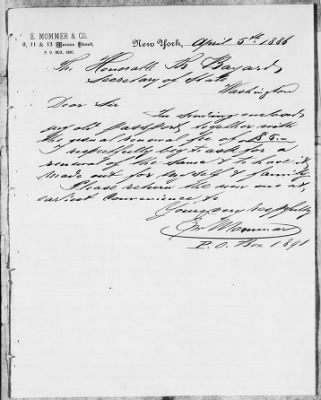 E. MOMMER & CO.
9, 11 & 13 Mercer Street,
P. O. BOX, 1891.
New York, April 5th 1886
The Honorable Bayard,
Secretary of State
Washington
Dear Sir
In sending enclosed
my old passport, together with
the usual renewal fee of $5.-
I respectfully beg to ask for a
renewal of the same & to have it
made out for myself & family
Please return the new one at
earliest convenience to
Yours very respectfully
Mommer
P.O. Box 1891